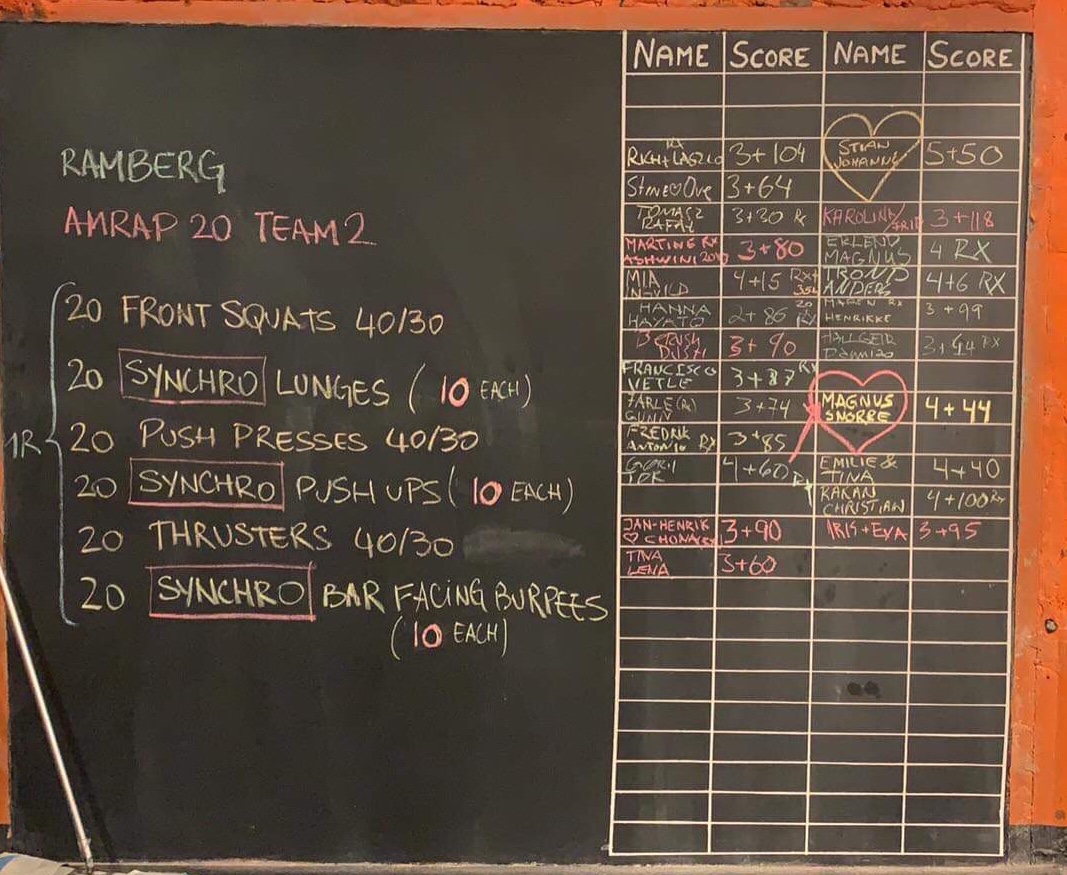 RAMBERG
AMRAP 20 TEAM 2
1R
20 FRONT SQUATS 40/30
20 SYNCHRO LUNGES (10 EACH)
20 PUSH PRESSES 40/30
20 SYNCHRO PUSH UPS (10 EACH)
20 THRUSTERS 40/30
20 SYNCHRO BAR FACING BURPEES
(10 EACH)
NAME SCORE NAME SCORE
RICH+LASZLO 3+104 STIAN JOHANNE 5+50
STINE♡OVE 3+64
TOMASZ 3+30 Rx KAROLINA/ 3+118
MARTINE RX ASHWINI 3+80 ERLEND MAGNUS 4 RX
MIA 4+15 Rx+ TROND ANDERS 4+6 RX
HANNA HAYATO 2+86 MAREN RX HENRIKKE 3+99
3+90 HALLGEIR
FRANCISCO VETLE 3+87 RX
JARLE (Rx) GUNN 3+74 MAGNUS SNORRE 4+44
FREDRIK ANTONIO RX 3+85
4+60 EMILIE & TINA 4+40
RAKAN CHRISTIAN 4+100 Rx
JAN-HENRIK 3+90 IRIS+EVA 3+95
TINA LENA 3+60